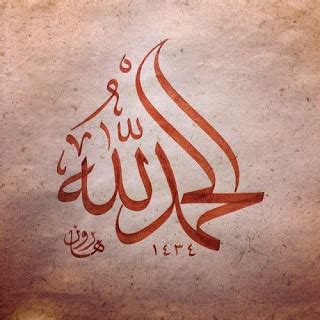 الحمد لله
١٤٣٤
هارون